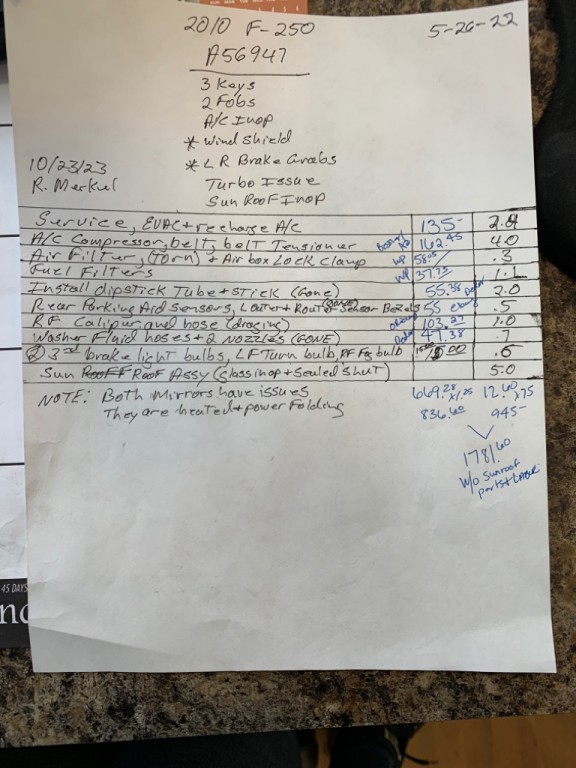 2010 F-250
5-26-22
A56947
3 Keys
2 Fobs
A/C Inop
* Wind Shield
10/23/23
* L R Brake Grabs
R. Merkel
Turbo Issue
Sun Roof Inop
Service, EVAC + recharge A/C 135- 2.4
A/C Compressor, belt, belt Tensioner 162.45 4.0
Air Filter, (Torn) + Air box Lock Clamp WP 58.05 .3
Fuel Filters WP 37.75 1.1
Install dipstick Tube + stick (Gone) 55.38 2.0
Rear Parking Aid Sensors, L outer + R outer Sensor Bezels 55 ebay .5
RF Caliper and hose (draging) 103.27 1.0
Washer Fluid hoses + 2 nozzles (GONE) 47.38 .7
② 3rd brake light bulbs, LF Turn bulb, RF Fog bulb 15.00 .6
Sun Roof Assy (glass inop + Sealed Shut) 5.0
NOTE: Both Mirrors have issues 669.28 x1.25 12.60 x75
They are heated + power Folding 836.60 945-
1781.60
W/O Sunroof
parts + Labor
45 DAYS